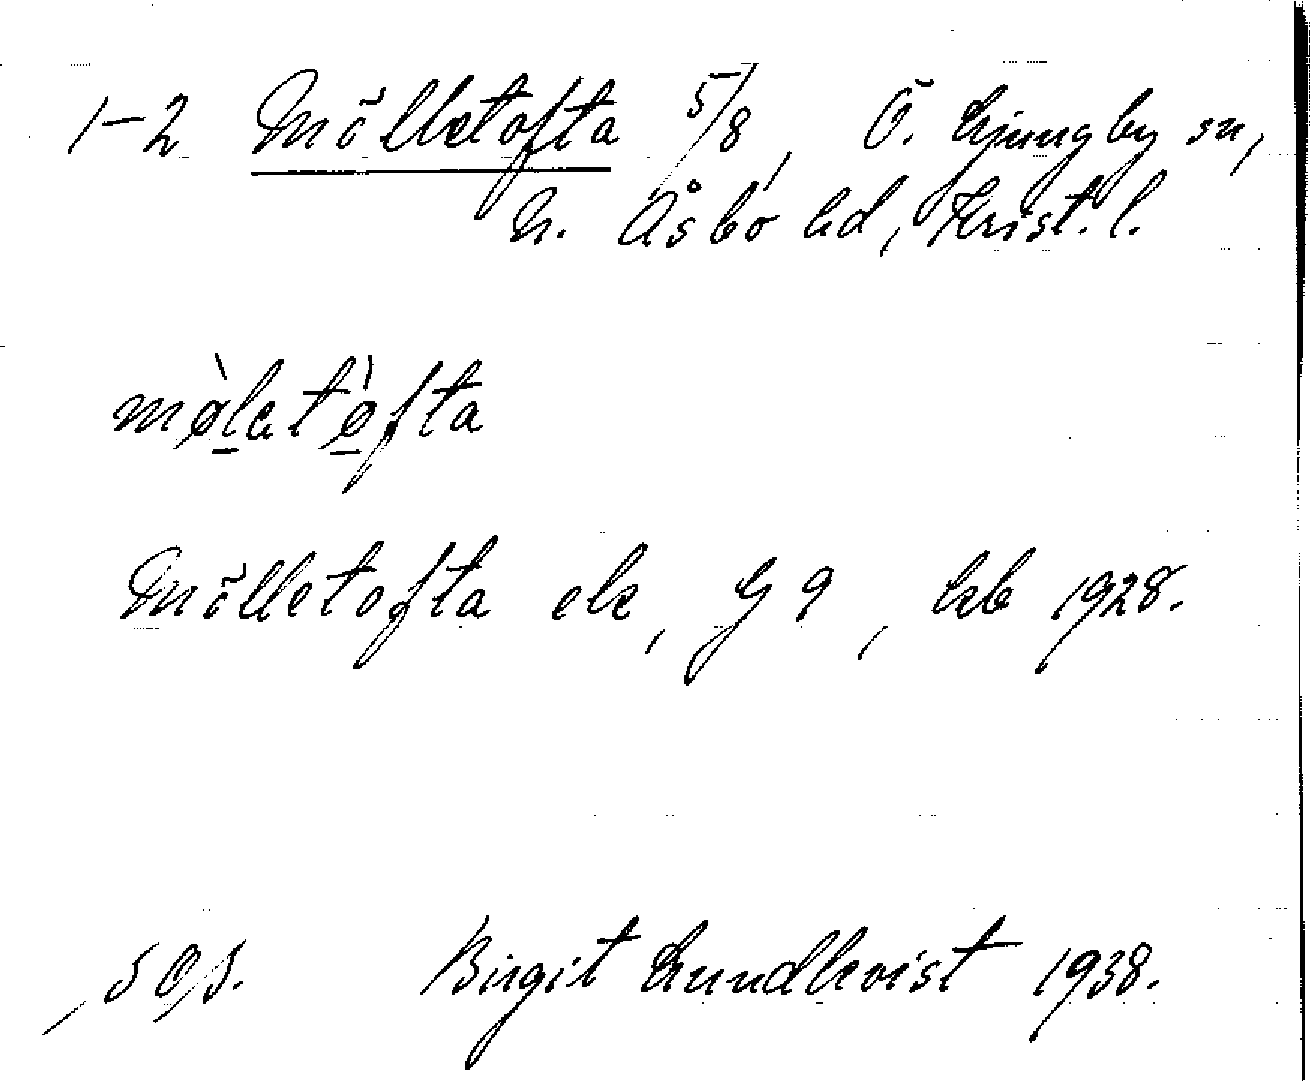 1-2 Mölletofta 5/8, Ö. Ljungby sn,
N. Åsbo hd, Krist. l.
mø̀letø̀fta
Mölletofta ek, G 9, kb 1928.
SOS. Birgit Lundkvist 1938.